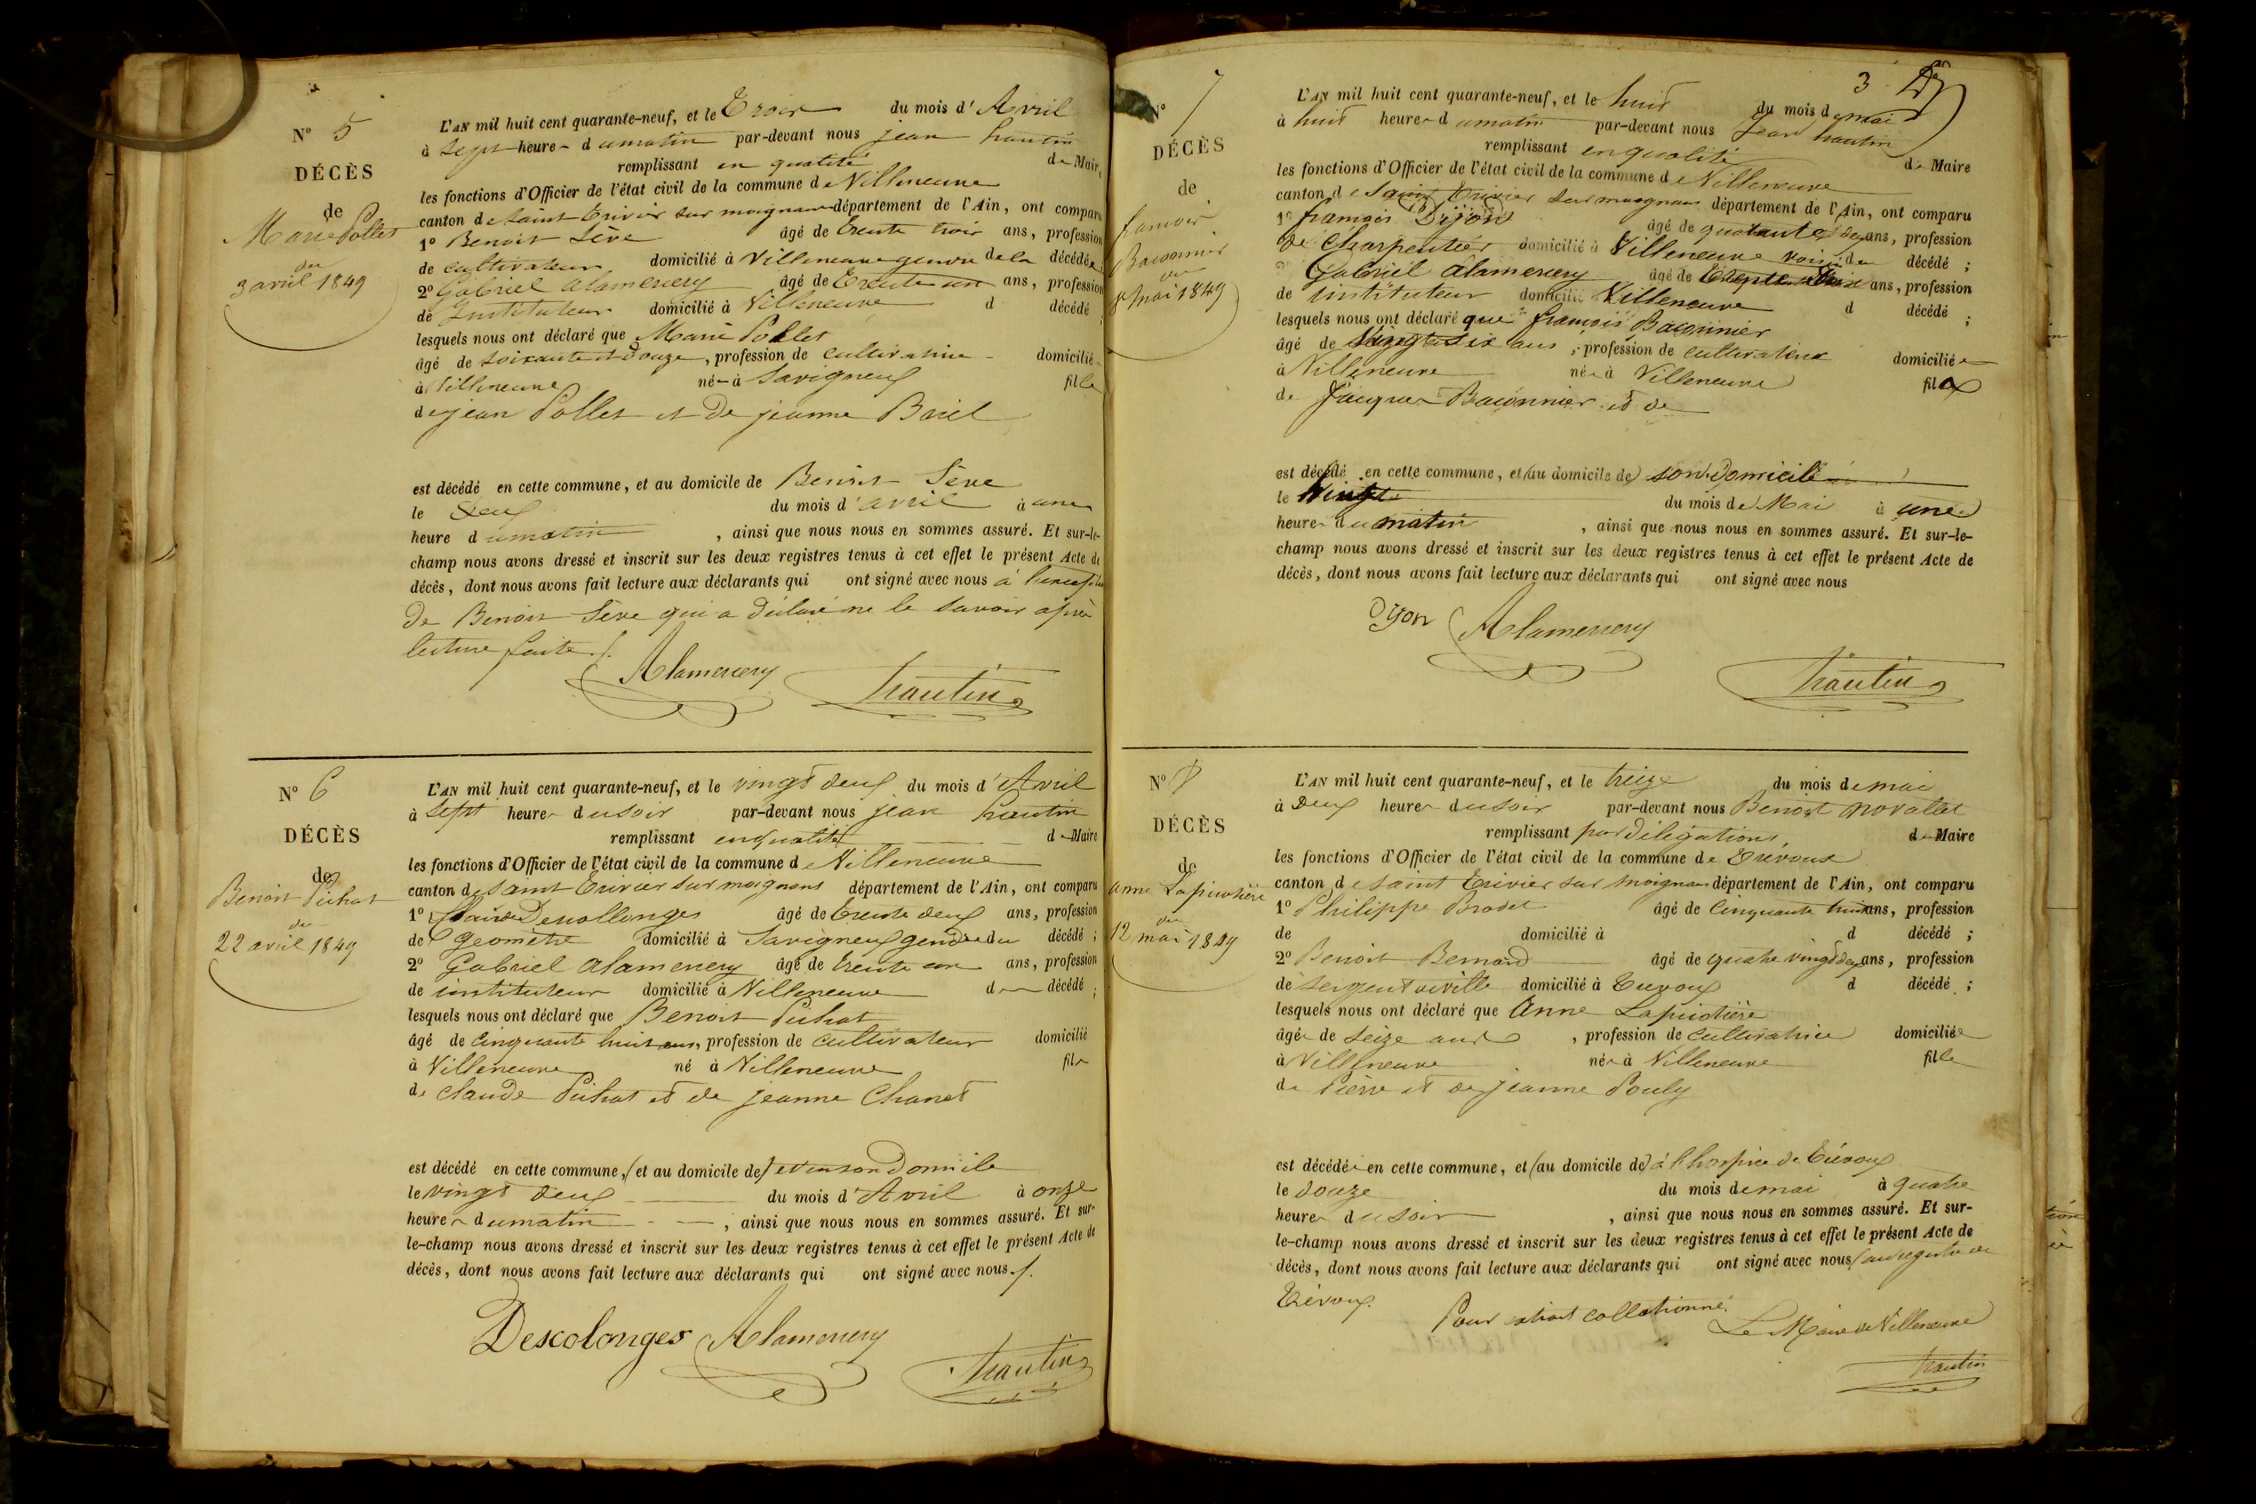 N° 5
DÉCÈS
de
Marie Pollet
du
3 avril 1849
L'AN mil huit cent quarante-neuf, et le Trois du mois d'Avril
à Sept heures du matin par-devant nous jean Trautin
remplissant en qualité de Maire
les fonctions d'Officier de l'état civil de la commune de Villeneuve
canton de Saint Trivier sur moignans département de l'Ain, ont comparu
1° Benoit Sève âgé de trente trois ans, profession
de cultivateur domicilié à Villeneuve gendre de la décédée
2° Gabriel Alamercery âgé de Trente un ans, profession
de Instituteur domicilié à Villeneuve d décédé ;
lesquels nous ont déclaré que Marie Pollet
âgé de soixante et douze, profession de cultivatrice domiciliée
à Villeneuve née à Savigneux fille
de jean Pollet et De jeanne Boriel
est décédé en cette commune, et au domicile de Benoit Sève
le Deux du mois d'avril à une
heure du matin, ainsi que nous nous en sommes assuré. Et sur-le-
champ nous avons dressé et inscrit sur les deux registres tenus à cet effet le présent Acte de
décès, dont nous avons fait lecture aux déclarants qui ont signé avec nous à l'exception
De Benoit Sève qui a déclaré ne le savoir après
lecture faite ./.
Alamercery Trautin
N° 6
DÉCÈS
de
Benoit Pichat
du
22 avril 1849
L'AN mil huit cent quarante-neuf, et le vingt deux du mois d'Avril
à Sept heures du soir par-devant nous jean Trautin
remplissant en qualité de Maire
les fonctions d'Officier de l'état civil de la commune de Villeneuve
canton de Saint Trivier sur moignans département de l'Ain, ont comparu
1° Descollonges âgé de trente deux ans, profession
de Géomètre domicilié à Savigneux gendre du décédé ;
2° Gabriel Alamercery âgé de trente un ans, profession
de instituteur domicilié à Villeneuve d décédé ;
lesquels nous ont déclaré que Benoit Pichat
âgé de cinquante huit ans, profession de cultivateur domicilié
à Villeneuve né à Villeneuve fils
de Claude Pichat et de jeanne Chanet
est décédé en cette commune, (et au domicile de) et en son Domicile
le vingt deux du mois d'Avril à onze
heures du matin, ainsi que nous nous en sommes assuré. Et sur-
le-champ nous avons dressé et inscrit sur les deux registres tenus à cet effet le présent Acte de
décès, dont nous avons fait lecture aux déclarants qui ont signé avec nous ./.
Descolonges Alamercery
Trautin
3
N° 7
DÉCÈS
de
françois
Baconnier
du
8 mai 1849
L'AN mil huit cent quarante-neuf, et le huit du mois de mai
à huit heures du matin par-devant nous Jean Trautin
remplissant en qualité de Maire
les fonctions d'Officier de l'état civil de la commune de Villeneuve
canton de Saint Trivier sur moignans département de l'Ain, ont comparu
1° françois Dijon âgé de quarante deux ans, profession
de Charpentier domicilié à Villeneuve voisin du décédé ;
Gabriel Alamercery âgé de trente ans, profession
de instituteur domicilié Villeneuve d décédé ;
lesquels nous ont déclaré que françois Baconnier
âgé de six ans, profession de cultivateur domicilié
à Villeneuve né à Villeneuve fil
de Jacques Baconnier et de
est décédé en cette commune, et (au domicile de) son Domicile
le du mois de Mai à une
heure du matin, ainsi que nous nous en sommes assuré. Et sur-le-
champ nous avons dressé et inscrit sur les deux registres tenus à cet effet le présent Acte de
décès, dont nous avons fait lecture aux déclarants qui ont signé avec nous
Dijon Alamercery
Trautin
N° 8
DÉCÈS
de
anne Lapierotière
du
12 mai 1849
L'AN mil huit cent quarante-neuf, et le treize du mois de mai
à Deux heures du soir par-devant nous Benoit Novallet
remplissant par délégation de Maire
les fonctions d'Officier de l'état civil de la commune de Trévoux
canton de Saint Trivier sur moignans département de l'Ain, ont comparu
1° Philippe Brodet âgé de Cinquante ans, profession
de domicilié à d décédé ;
2° Benoit Bernard âgé de quatre vingt deux ans, profession
de Sergent de ville domicilié à Trévoux d décédé ;
lesquels nous ont déclaré que Anne Lapierotière
âgée de Seize ans, profession de cultivatrice domiciliée
à Villeneuve née à Villeneuve fille
de Pierre et de jeanne Pouly
est décédée en cette commune, et (au domicile de) à l'hospice de Trévoux
le douze du mois de mai à quatre
heures du soir, ainsi que nous nous en sommes assuré. Et sur-
le-champ nous avons dressé et inscrit sur les deux registres tenus à cet effet le présent Acte de
décès, dont nous avons fait lecture aux déclarants qui ont signé avec nous au registre de
Trévoux.
Pour extrait collationné.
Le Maire de Villeneuve
Trautin